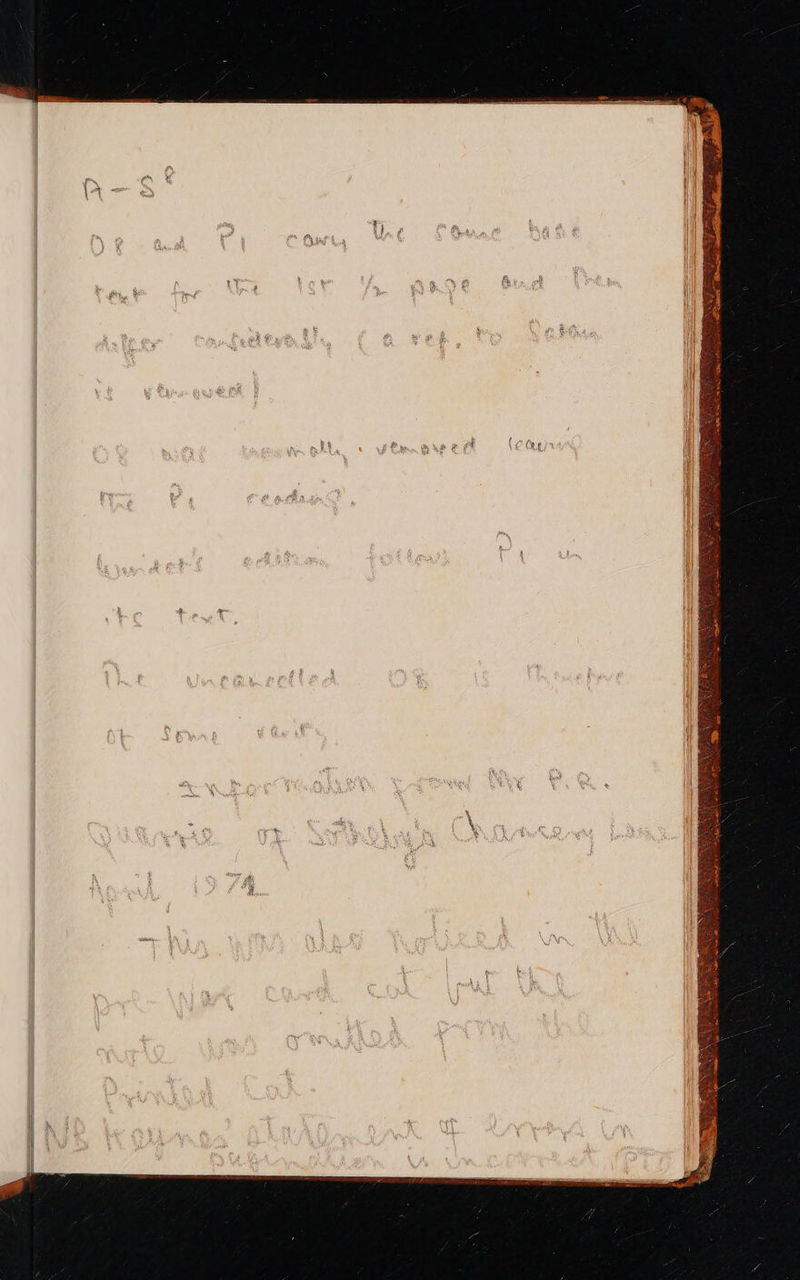 A - S⁸
O8 and P1 carry the same base
text for the 1st 1/2 page and then
differ (a ref. to
is removed)
O8 was removed leaving
the P1 reading.
edition follows P1 in
its text.
The uncancelled O8 is therefore
of some
Information from Mr P.R.
Quarrie of Sotheby's Chancery Lane
April 1974
This was also noticed in the
pre-War card cat but the
note was omitted from the
Printed Cat.
NB Keynes' statement of errors in
is incorrect